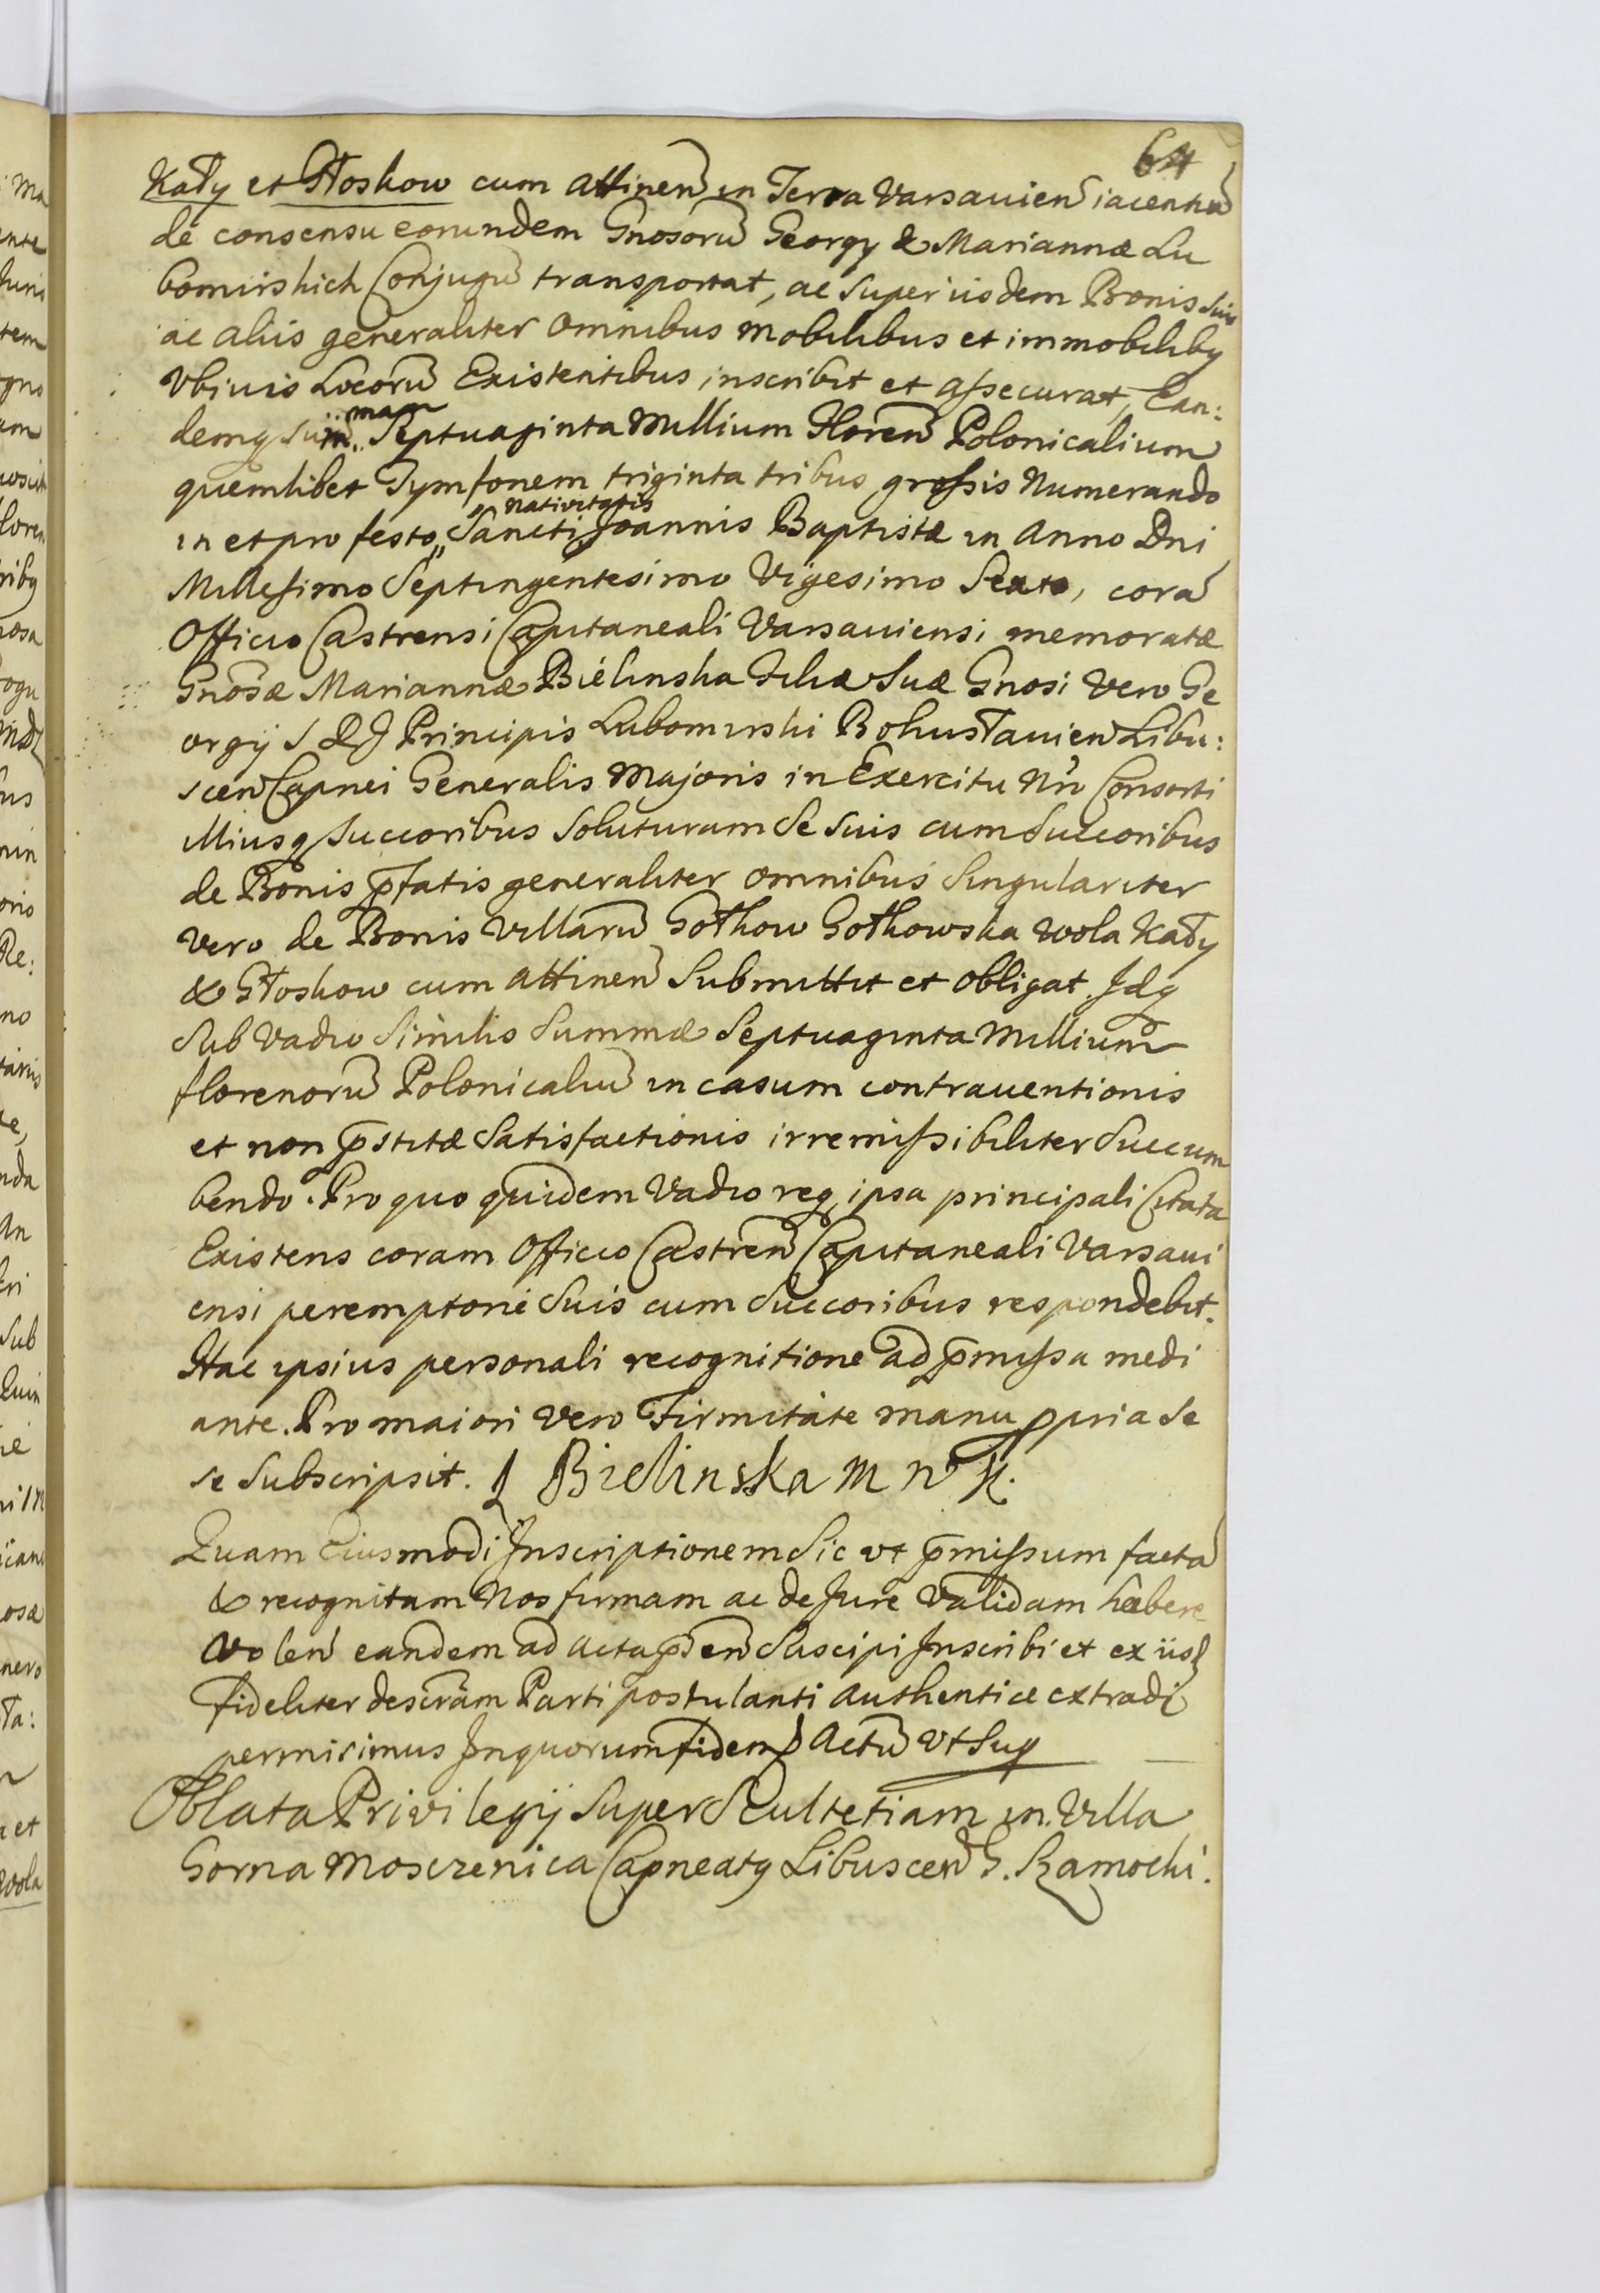 64
Kąty et Głoskow cum attinen in Terra Varsauien iacentiu
de consensu eorundem Gnosoru Georgy & Mariannæ Lu
bomirskich Conjugu transportat, ac super iisdem Bonis suis
ac aliis generaliter omnibus mobilibus et immobiliby
Vbiuis Locoru Existentibus inscribit et assecurat, Ean:
demq sum̃mam Septuaginta Millium Floren Polonicalium
quemlibet Tymfonem triginta tribus grossis Numerando
in et pro festo Nativitatis Sancti Joannis Baptistæ in Anno Dni
Millesimo Septingentesimo Vigesimo Sexto, cora
Officio Castrensi Capitaneali Varsauiensi memoratæ
Gnosæ Mariannæ Bielinska Filiæ Suæ Gnosi Vero Ge
orgij S R J Principis Lubomirski Bohuslauien Libu:
scen Capnei Generalis Majoris in Exercitu Nro Consorti
illiusq Succoribus Soluturam Se Suis cum Succoribus
de Bonis p̃fatis generaliter omnibus Singulariter
Vero de Bonis Villaru Gołkow Gołkowska Wola Kąty
& Głoskow cum attinen Submittit et obligat Jdq
Sub Vadio Similis Summæ Septuaginta Millium
florenoru Polonicaliu in casum contrauentionis
et non p̃stitæ Satisfactionis irremissibiliter Succum
bendo. Pro quo quidem Vadio req ipsa principali Citata
Existens coram Officio Castren Capitaneali Varsaui
ensi peremptorie Suis cum Succoribus respondebit.
Hac ipsius personali recognitione ad p̃missa medi
ante. Pro maiori Vero Firmitate manu ppria Se
se Subscripsit. Bielinska m n k.
Quam Eiusmodi Inscriptionem Sic vt p̃missum facta
& recognitam Nos firmam ac de Jure Validam habere
Volen eandem ad acta p̃sen Suscipi Inscribi et ex iisd
fideliter descram Parti postulanti authentice extradi
permisimus Jn quorum fidem Actu Vt Sup
Oblata Privilegij Super Scultetiam in Villa
Gorna Moszczenica Capneaty Libuscen G. Ramocki.